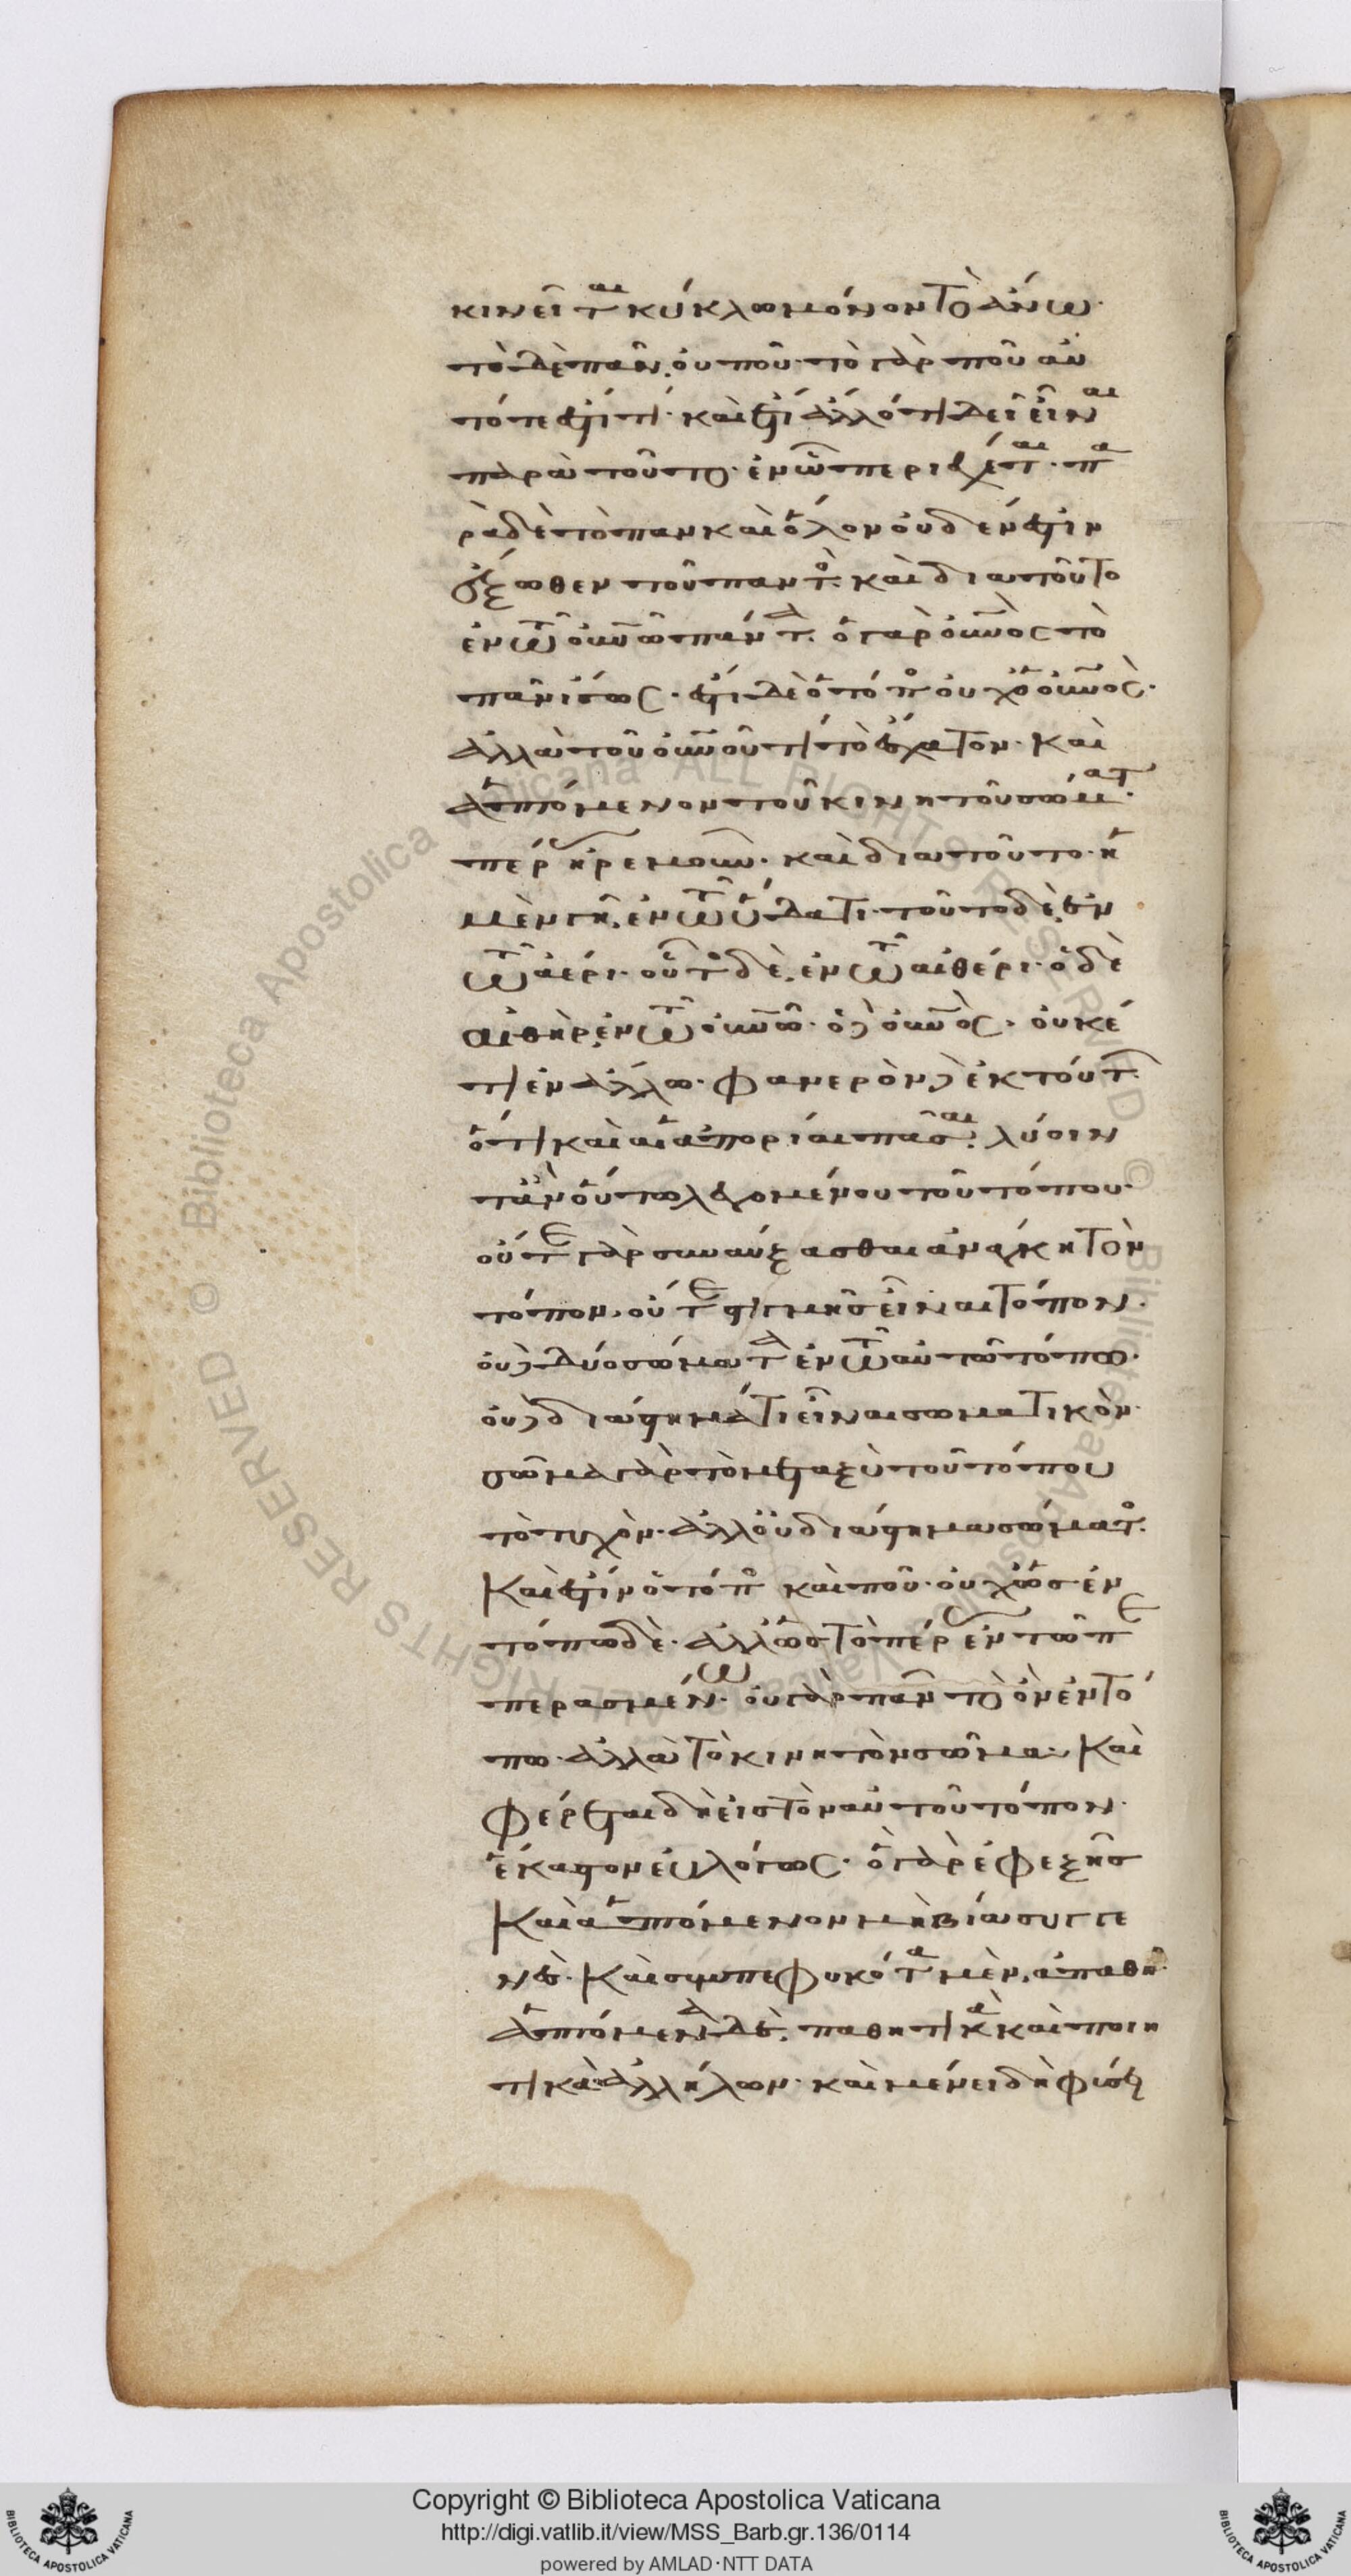 κινεῖται κύκλω μόνον τὸ ἄνω·
τὸ δὲ πᾶν, οὐ ποῦ· τὸ γὰρ ποῦ αὐ
τό τε ἐστί τι· καὶ ἔτι ἄλλό τι δεῖ εἶναι
παρὰ τοῦτο· ἐν ᾧ περιέχεται· πα
ρὰ δὲ τὸ παν καὶ ὅλον οὐδέν ἐστιν
ἔξωθεν τοῦ παντὸς· καὶ διὰ τοῦτο
ἐν τῶ οὐνῶ πάντα· ὁ γὰρ οὐνὸς τὸ
πᾶν ἴσως· ἔστι δὲ ὁ τόπος οὐχ ὁ οὐνὸς·
ἀλλὰ τοῦ οὐνοῦ τι τὸ ἔσχατον· καὶ
ἁπτόμενον τοῦ κινητοῦ σώματος·
πέρας ἠρεμοῦν· καὶ διὰ τοῦτο· ἡ
μὲν γῆ, ἐν τῶ ὕδατι· τοῦτο δὲ, ἐν
τῶ ἀέρι· οὗτος δὲ, ἐν τῶ αἰθέρι· ὁ δὲ
αἰθὴρ, ἐν τῶ οὐνῶ· ὁ δὲ οὐνὸς, οὐκέ
τι ἐν ἄλλω· φανερὸν δὲ ἐκ τούτων
ὅτι καὶ αἱ ἀπορίαι πᾶσαι λύοιν
τ' ἂν οὕτω λεγομένου τοῦ τόπου·
οὔτε γὰρ συναύξασθαι ἀνάγκη τὸν
τόπον, οὔτε στιγμῆς εἶναι τόπον·
οὐδὲ δύο σώματα ἐν τῶ αὐτῶ τόπω·
οὐδὲ διάστημά τι εἶναι σωματικὸν·
σῶμα γὰρ τὸ μεταξὺ τοῦ τόπου
τὸ τυχὸν· ἀλλ' οὐ διάστημα σώματος·
Καὶ ἔστιν ὁ τόπος καὶ ποῦ· οὐχ ὡς ἐν
τόπω δὲ· ἀλλ' ὡς τὸ πέρας ἐν τῶ πε
περασμένω· οὐ γὰρ πᾶν τὸ ὂν ἐν τό
πω· ἀλλὰ τὸ κινητὸν σῶμα· Καὶ
φέρεται δὴ εἰς τὸν αὐτοῦ τόπον
ἕκαστον εὐλόγως· ὃ γὰρ ἐφεξῆς
Καὶ ἁπτόμενον μὴ βία συγγε
νὲς· Καὶ συμπεφυκότα μὲν, ἀπαθῆ·
ἁπτόμενα δὲ, παθητικὰ καὶ ποιη
τικὰ ἀλλήλων· καὶ μένει δὴ φύσει
Copyright © Biblioteca Apostolica Vaticana
http://digi.vatlib.it/view/MSS_Barb.gr.136/0114
powered by AMLAD·NTT DATA